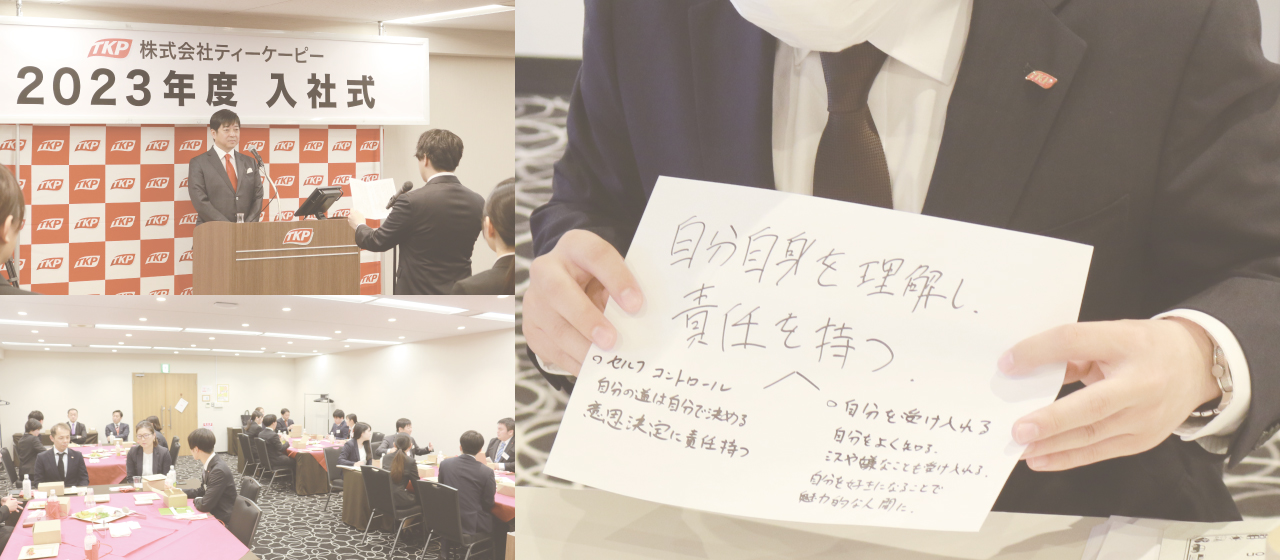 TKP 株式会社ティーケーピー
2023年度 入社式
TKP
自分自身を理解し、
責任を持つ.
○セルフコントロール
自分の道は自分で決める
意思決定に責任持つ
○自分を受け入れる
自分をよく知る.
ミスや嫌なことも受け入れる.
自分を好きになることで
魅力的な人間に.
TKP